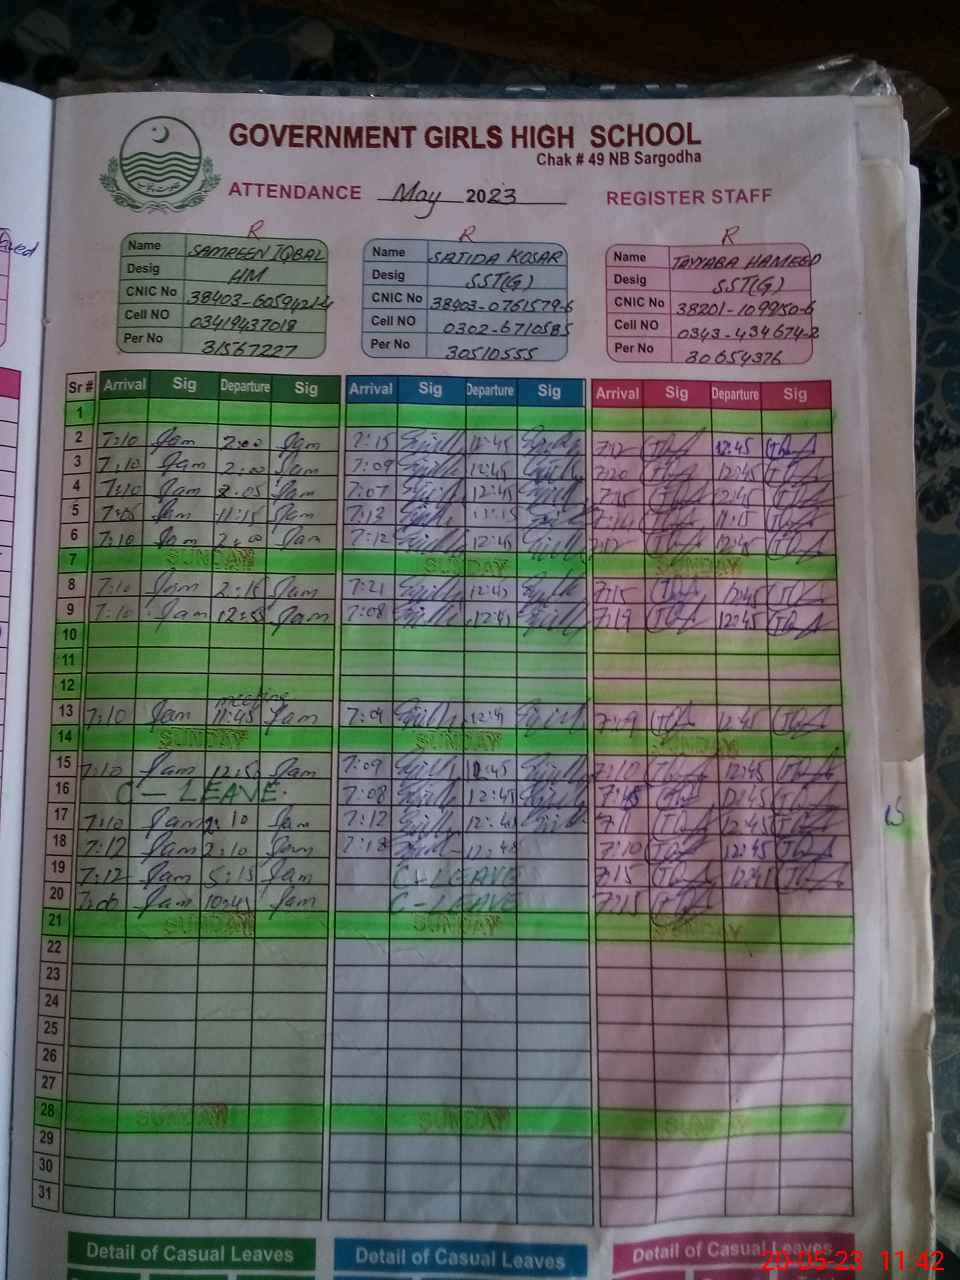 GOVERNMENT GIRLS HIGH SCHOOL
Chak # 49 NB Sargodha
ATTENDANCE May 2023 REGISTER STAFF
R R R
Name SAMREEN IQBAL Name SAJIDA KOSAR Name TAYYABA HAMEED
Desig HM Desig SST(G) Desig SST(G)
CNIC No CNIC No 38403-0761579-6 CNIC No 38201-109950-6
Cell NO 03419437018 Cell NO 0302-6710585 Cell NO 0343-434674-2
Per No 31567227 Per No 30510555 Per No 30654376
Sr # Arrival Sig Departure Sig Arrival Sig Departure Sig Arrival Sig Departure Sig
1
2 7:10 Sam 2:00 Sam 7:15 12:45 12:45
3 7:10 Sam 2:00 Sam 7:09 12:45 7:20 12:45
4 7:10 Sam 2:05 Sam 7:07 12:45 7:15 12:45
5 7:05 Sam 11:15 Sam 7:13 11:15 11:15
6 7:10 Sam 2:00 Sam 7:12 12:45 12:45
7 SUNDAY SUNDAY SUNDAY
8 7:10 Sam 2:15 Sam 7:21 12:45 7:15 12:45
9 7:10 Sam 12:55 Sam 7:08 12:45 7:19 12:45
10
11
12
meeting
13 7:10 Sam 11:45 Sam 7:09 12:45 12:45
14 SUNDAY SUNDAY SUNDAY
15 7:10 Sam 12:50 Sam 7:09 12:45 7:10 12:45
16 C - LEAVE 7:08 12:45 12:45
17 7:10 Sam 2:10 Sam 7:12 12:45 7:11 12:45
18 7:12 Sam 2:10 Sam 7:18 12:45 7:10 12:45
19 7:12 Sam 5:15 Sam C-LEAVE 7:15 12:45
20 7:00 Sam 10:45 Sam C-LEAVE 7:15
21 SUNDAY SUNDAY SUNDAY
22
23
24
25
26
27
28 SUNDAY SUNDAY SUNDAY
29
30
31
Detail of Casual Leaves Detail of Casual Leaves Detail of Casual Leaves
20-05-23 11:42